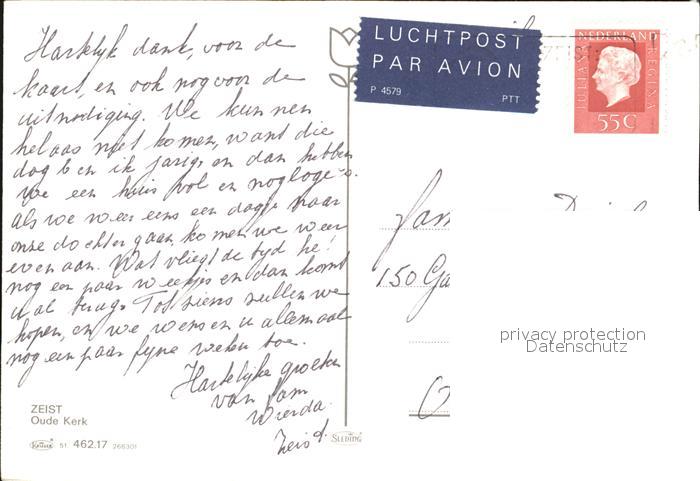 Hartelijk dank, voor de
kaart, en ook nog voor de
uitnodiging. We kunnen
helaas niet komen, want die
dag ben ik jarig en dan hebben
we een huis vol en nog logé's.
als we weer eens een dagje naar
onze dochter gaan komen we weer
even aan. Wat vliegt de tijd hè!
nog een paar weekjes en dan komt
u al terug. Tot ziens zullen we
hopen, en we wensen u allemaal
nog een paar fijne weken toe.
Hartelijke groeten
van fam
Wierda.
Zeist.
ZEIST
Oude Kerk
51 462.17 266301
SLEDING
LUCHTPOST
PAR AVION
P 4579 PTT
NEDERLAND
JULIANA REGINA
55C
Fam
150 Ga
privacy protection
Datenschutz